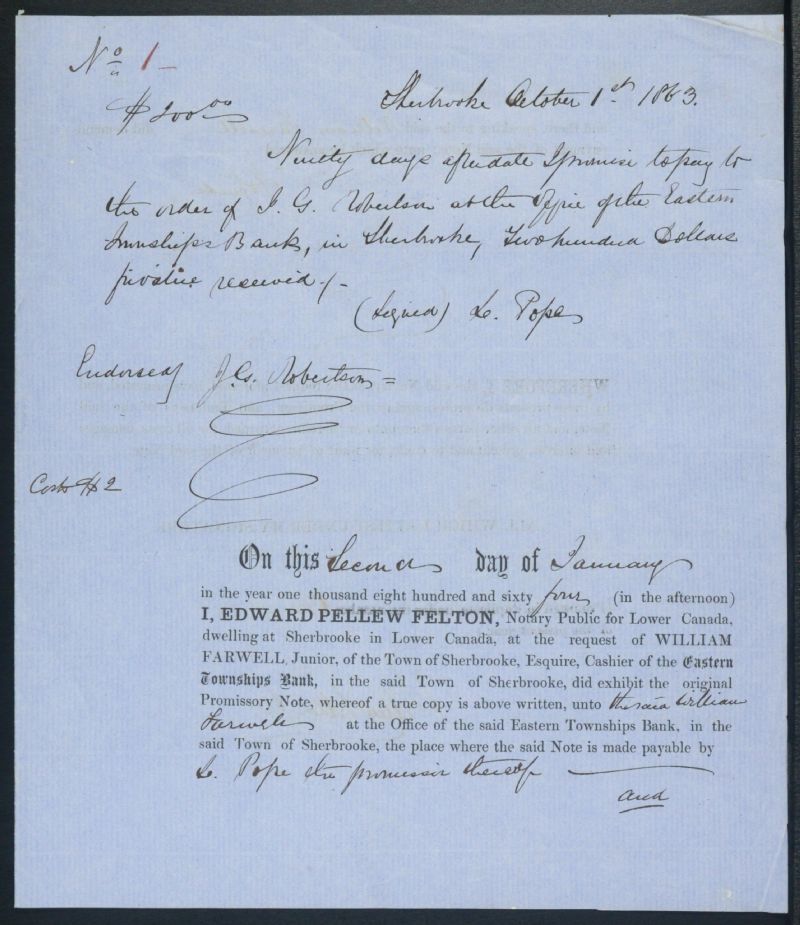 No 1
$200 00
Sherbrooke October 1st 1863.
Ninety days after date I promise to pay to
the order of J. G. Robertson at the Office of the Eastern
Townships Bank, in Sherbrooke, Two hundred Dollars
received
(Signed) L. Pope
Endorsed J. G. Robertson =
Costs $2
On this Second day of January
in the year one thousand eight hundred and sixty four (in the afternoon)
I, EDWARD PELLEW FELTON, Notary Public for Lower Canada,
dwelling at Sherbrooke in Lower Canada, at the request of WILLIAM
FARWELL, Junior, of the Town of Sherbrooke, Esquire, Cashier of the Eastern
Townships Bank, in the said Town of Sherbrooke, did exhibit the original
Promissory Note, whereof a true copy is above written, unto the said William
Farwell at the Office of the said Eastern Townships Bank, in the
said Town of Sherbrooke, the place where the said Note is made payable by
L. Pope the promissor thereof
and